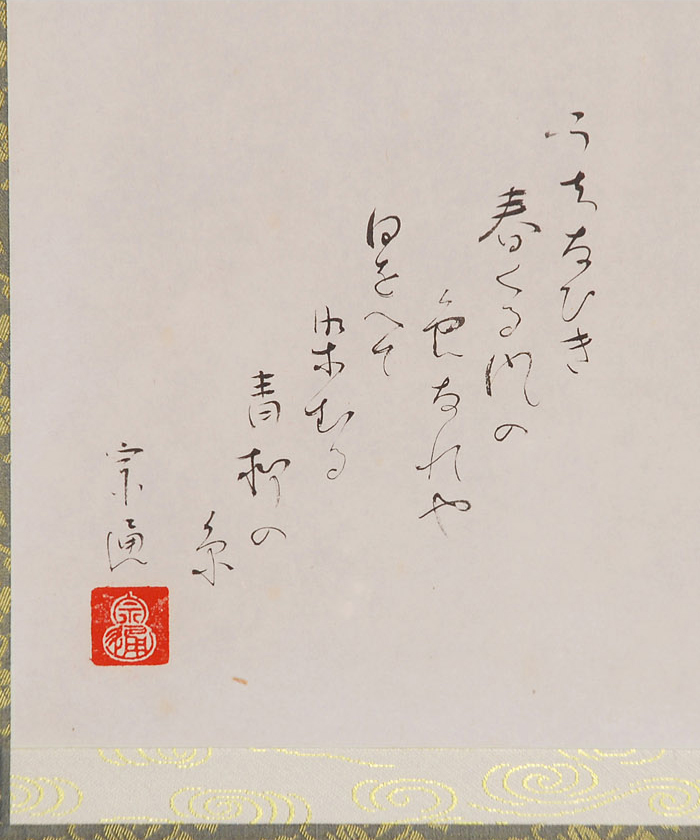 うちなひき
春くる門の
色なれや
日をへて
染むる
青柳の
糸
宗通
宗通